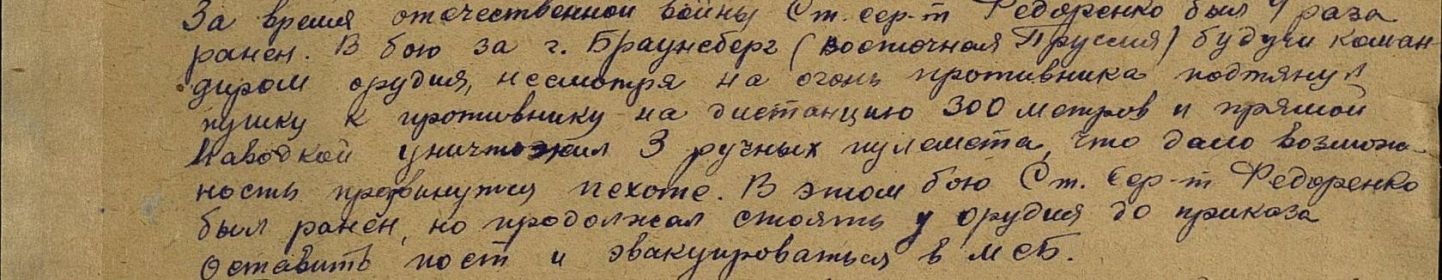 За время отечественной войны Ст. сер-т Федоренко был 4 раза
ранен. В бою за г. Браунсберг (восточная Пруссия) будучи коман-
диром орудия, несмотря на огонь противника подтянул
пушку к противнику на дистанцию 300 метров и прямой
наводкой уничтожил 3 ручных пулемета, что дало возмож-
ность продвинутся пехоте. В этом бою Ст. Сер-т Федоренко
был ранен, но продолжал стоять у орудия до приказа
оставить пост и эвакуироваться в МСБ.